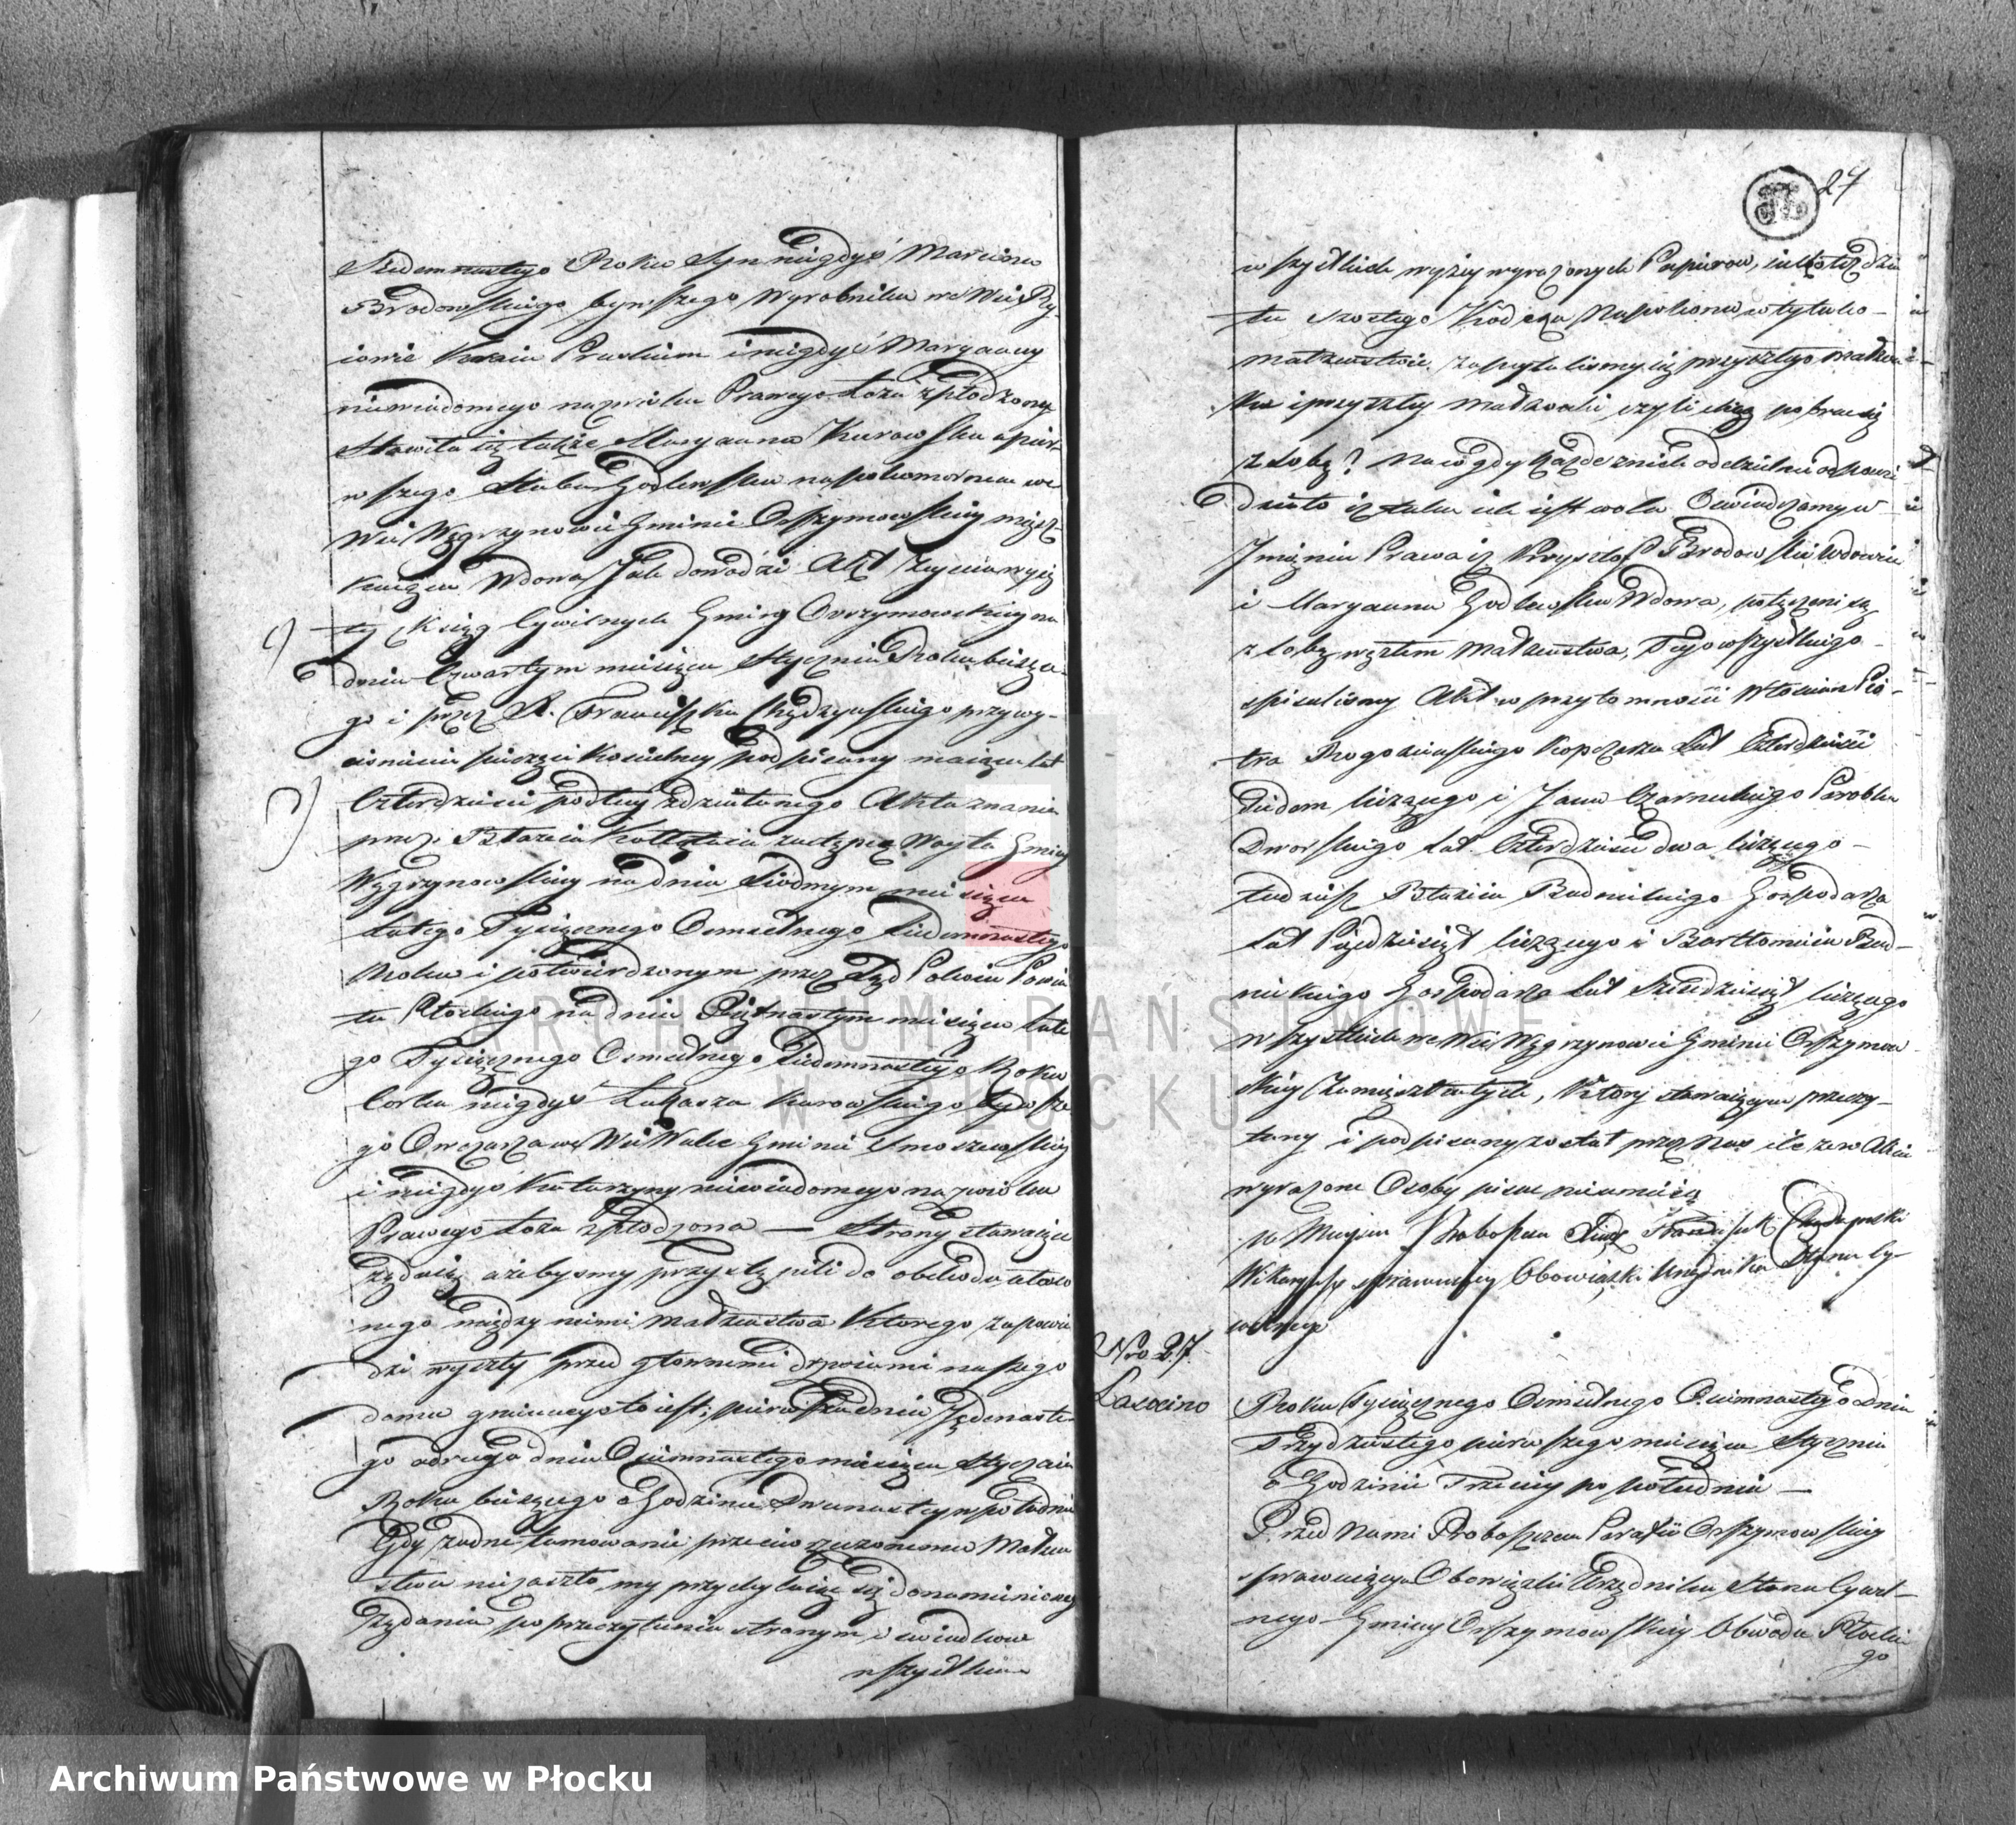 Siedemnastego Roku Syn niegdyś Marcina
Brodowskiego bywszego Wyrobnika we Wsi Ry-
iowie Kraiu Pruskim i niegdyś Maryanny
niewiadomego nazwiska Prawego Łoża zpłodzony
Stawiła się także Maryanna Kurowska a pier-
wszego Ślubu Godlewska na pokomornem we
Wsi Węgrzynowie Gminie Orszymowskiey miesz-
kaiąca Wdowa Jak dowodzi Akt Zeyścia wyię
ty z Ksiąg Cywilnych Gminy Orszymowskiey na
dniu Czwartym miesiąca Stycznia Roku bieżące-
go i przez X. Franciszka Chądzyńskiego przy wy-
cisnieniu pieczęci Koscielney podpisany maiąca lat
Czterdzieści podług zdziałanego Aktu znania
przez Błażeia Kołłątaia zastępcę Woyta Gminy
Węgrzynowskiey na dniu Siódmym miesiąca
Lutego Tysiącznego Osmsetnego Siedemnastego
Roku i potwierdzonym przez Sąd Pokoiu Powia
tu Płockiego na dniu Piętnastym miesiąca Lute
go Tysiącznego Osmsetnego Siedemnastego Roku
Corka niegdyś Łukasza Kurowskiego bywsze
go Owczarza we Wsi Gminie Smoszewskiey
i niegdyś Katarzyny niewiadomego nazwiska
Prawego Łoża zpłodzona — Strony stawaiące
żądaią ażebyśmy przystąpili do obchodu ułożo
nego między niemi Małżeństwa Ktorego zapowie
dzi wyszły przed głownemi drzwiami naszego
domu gminnego to iest; pierwsza dnia Jedenaste
go a druga dnia Osiemnastego miesiąca Stycznia
Roku bieżącego o Godzinie Dwunastey w południe
Gdy żadne tamowanie przeciw rzeczonemu Małżeń
stwu niezaszło, my przychylaiąc się do namienionego
żądania po przeczytaniu stronym i swiadkow
wszystkich
27
wszystkich wyżey wyrażonych Papierow, iakoteż dzia
łu szostego Kodexu Napoleona w tytule o
małżeństwie. zapytaliśmy się przyszłego małżon
ka i przyszłey małżonki, czyli chcą pobrać się
z sobą? na co gdy każde z nich oddzielnie odpowie
działo iż taka ich iest wola Oswiadczamy w
Imieniu Prawa iż Krysztof Brodowski Wdowiec
i Maryanna Godlewska Wdowa, połączeni są
z sobą węzłem Małżeństwa, Tego wszystkiego
spisaliśmy Akt w przytomności Włościan Pio-
tra Rogozińskiego Kopczarza Lat Czterdzieści
Siedem liczącego i Jana Czarneckiego Parobka
Dworskiego Lat Czterdzieści dwa liczącego
tudzież Błażeia Gospodarza
Lat Pięćdziesiąt liczącego i Bartłomieia
Gospodarza Lat Sześćdziesiąt liczącego
wszystkich we Wsi Węgrzynowie Gminie Orszymow-
skiey Zamieszkałych, Ktory stawaiącym przeczy-
tany i podpisany został przez Nas ile że w Akcie
wyrażone Osoby pisać nieumieią
w Mieyscu Proboszcza Xiądz Franciszek Chądzyński
Wikaryusz sprawuiący Obowiązki Urzędnika Stanu Cy-
wilnego
Nro 27.
Lasocino
Roku Tysiącznego Osmsetnego Osiemnastego Dnia
Trzydziestego pierwszego miesiąca Stycznia
o Godzinie Trzeciey po południu —
Przed Nami Proboszczem Parafii Orszymowskiey
sprawuiącym Obowiązki Urzędnika Stanu Cywil-
nego Gminy Orszymowskiey Obwodu Płockie
go
ARCHIWUM PAŃSTWOWE
W PŁOCKU
Archiwum Państwowe w Płocku